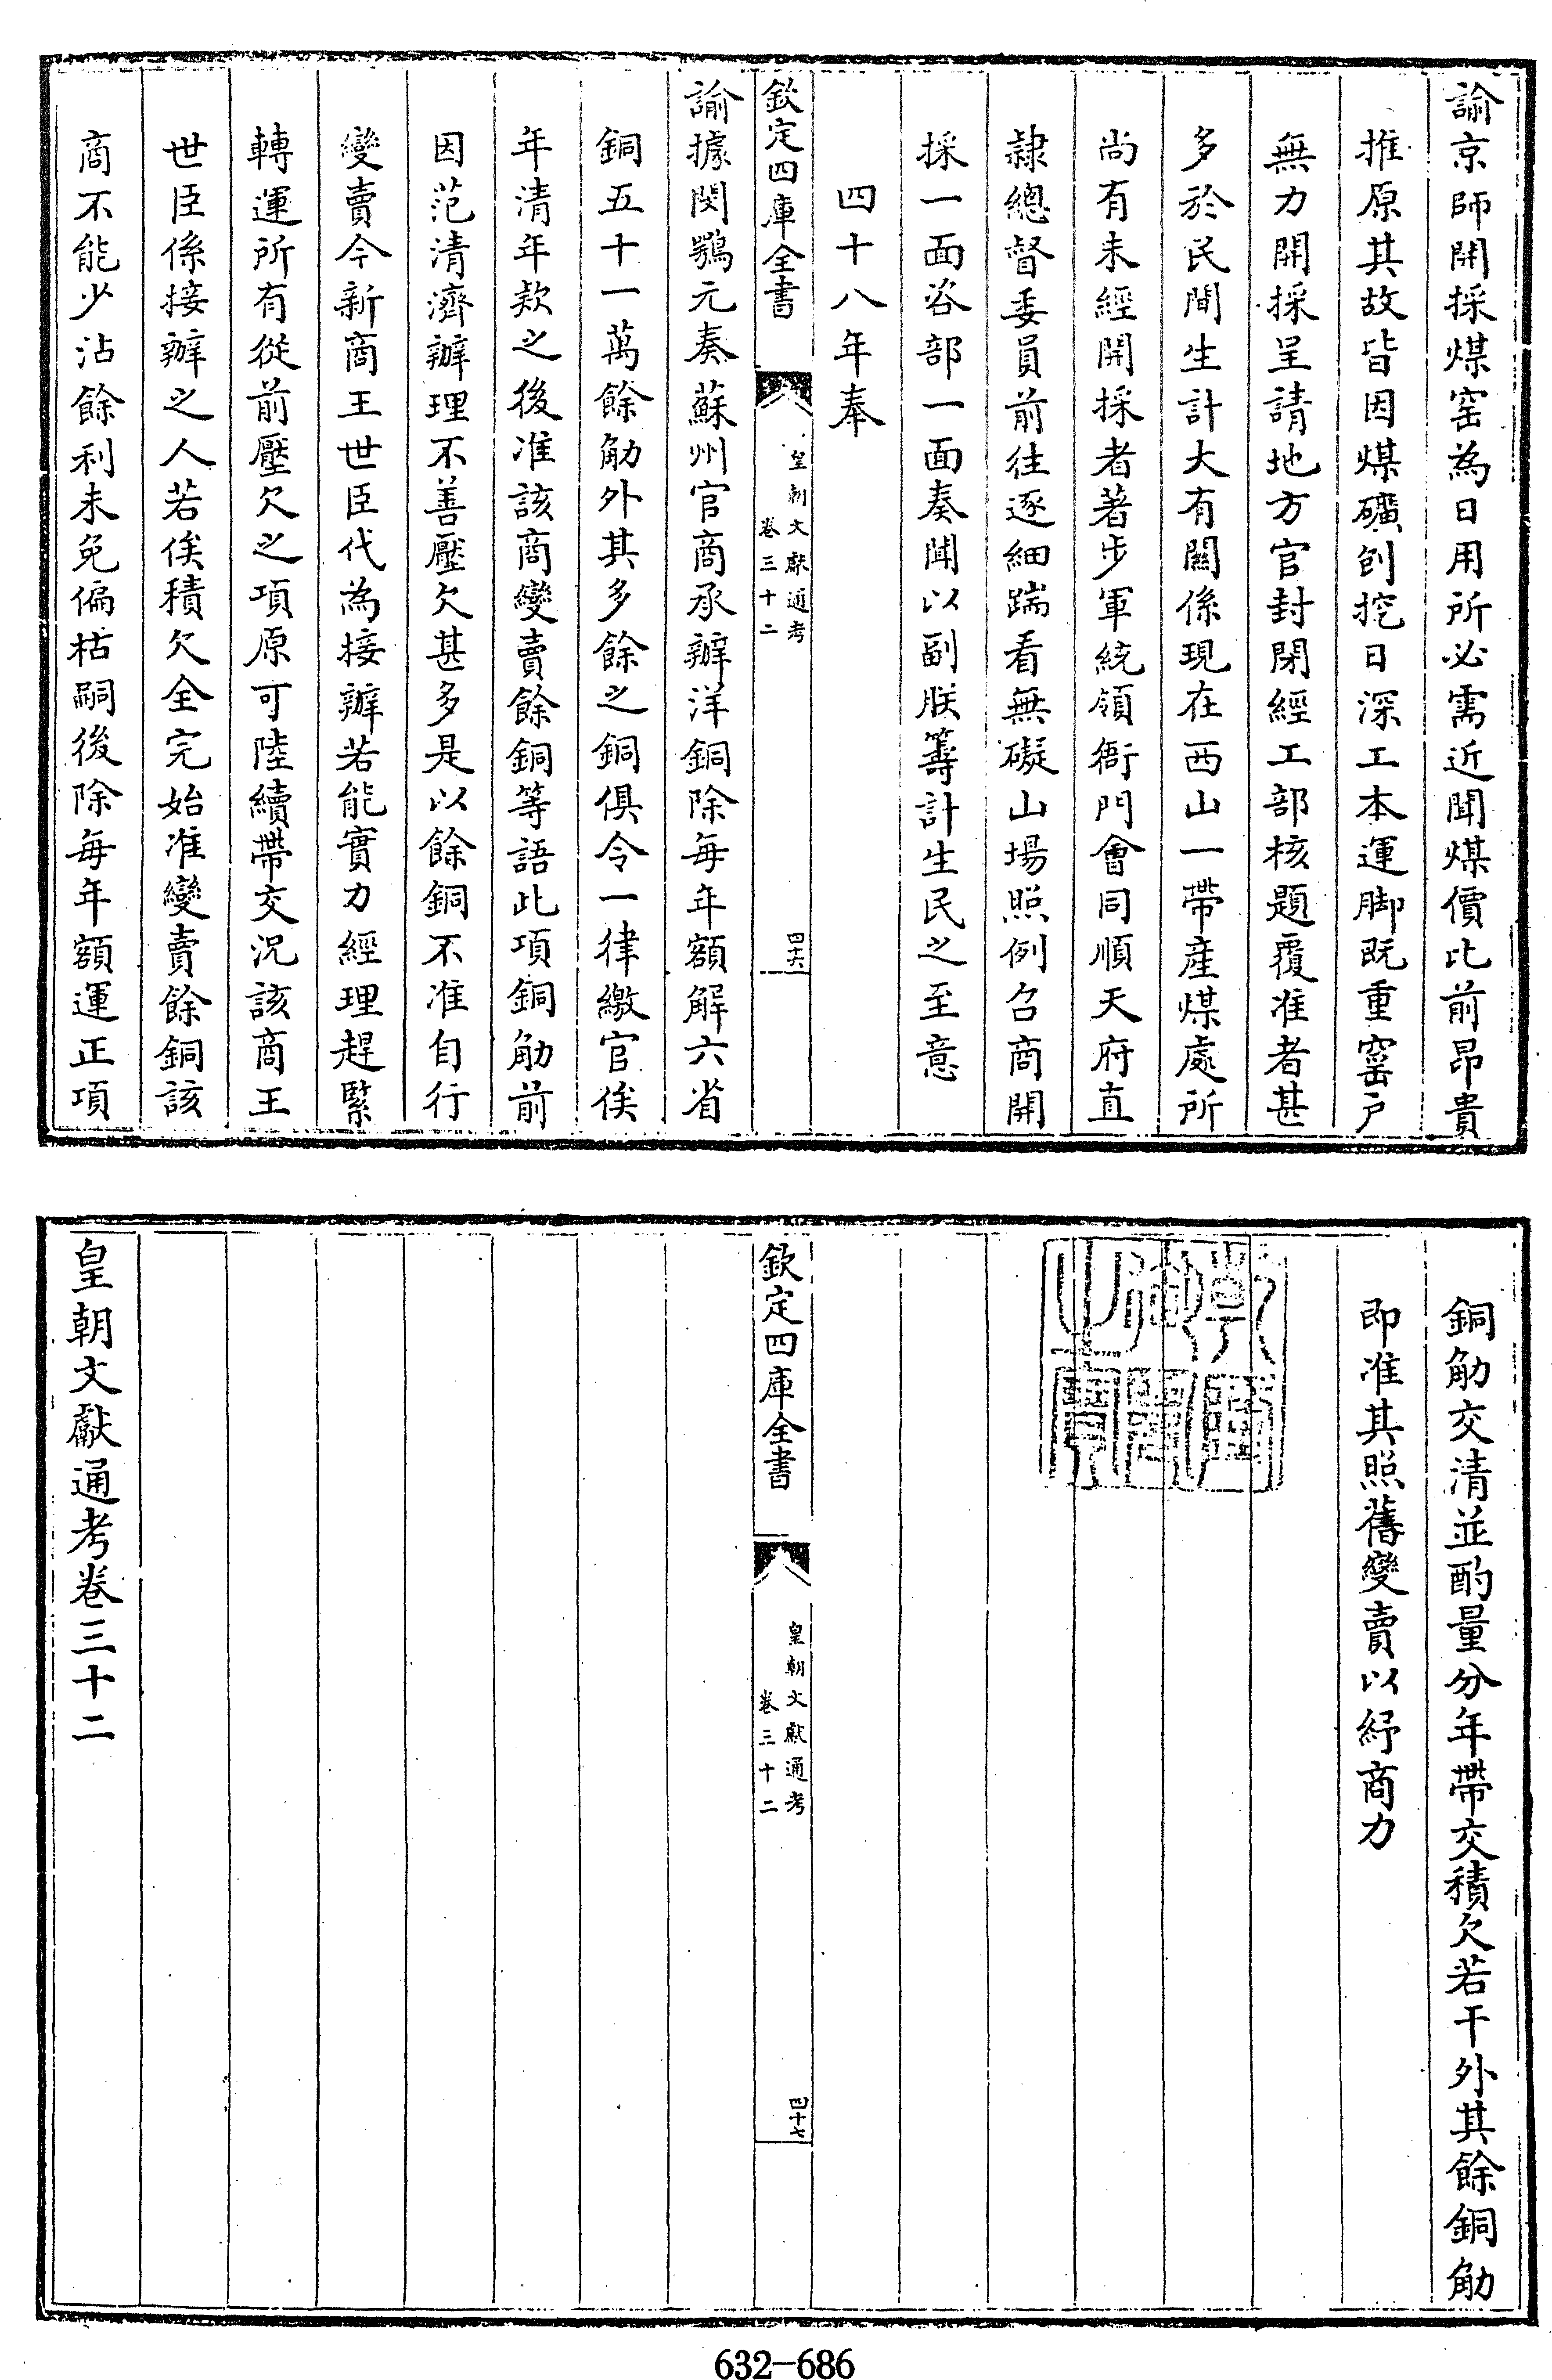 諭京師開採煤窑為日用所必需近聞煤價比前昂貴
推原其故皆因煤礦刨挖日深工本運脚既重窑戶
無力開採呈請地方官封閉經工部核題覆准者甚
多於民間生計大有關係現在西山一帶產煤處所
尚有未經開採者著步軍統領衙門會同順天府直
隷總督委員前往逐細踹看無礙山場照例召商開
採一面咨部一面奏聞以副朕籌計生民之至意
四十八年奉
欽定四庫全書
皇朝文獻通考
卷三十二
四十六
諭據閔鶚元奏蘇州官商承辦洋銅除每年額解六省
銅五十一萬餘觔外其多餘之銅俱令一律繳官俟
年清年款之後准該商變賣餘銅等語此項銅觔前
因范清濟辦理不善壓欠甚多是以餘銅不准自行
變賣今新商王世臣代為接辦若能實力經理趕緊
轉運所有從前壓欠之項原可陸續帶交況該商王
世臣係接辦之人若俟積欠全完始准變賣餘銅該
商不能少沾餘利未免偏枯嗣後除每年額運正項
銅觔交清並酌量分年帶交積欠若干外其餘銅觔
即准其照舊變賣以紓商力
乾隆御覽之寶
欽定四庫全書
皇朝文獻通考
卷三十二
四十七
皇朝文獻通考卷三十二
632-686